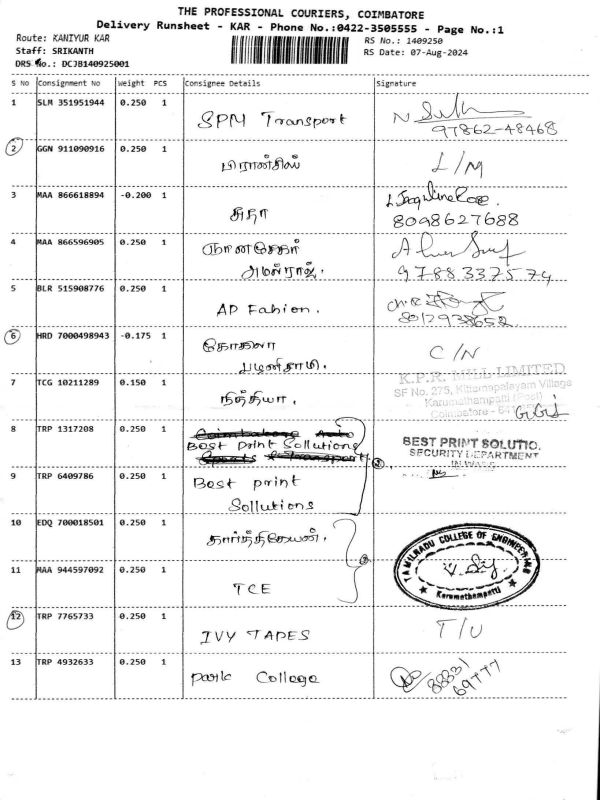 THE PROFESSIONAL COURIERS, COIMBATORE
Delivery Runsheet - KAR - Phone No.:0422-3505555 - Page No.:1
Route: KANIYUR KAR
RS No.: 1409250
Staff: SRIKANTH
RS Date: 07-Aug-2024
DRS No.: DCJB140925001
S No Consignment No Weight PCS Consignee Details Signature
1 SLM 351951944 0.250 1 SPM Transport
97862-48468
2 GGN 911090916 0.250 1 பிரான்சிஸ் L/M
3 MAA 866618894 -0.200 1 சுதா
8098627688
4 MAA 866596905 0.250 1 ஞானசேகர்
அமல்ராஜ். 9788337574
5 BLR 515908776 0.250 1 AP Fahion.
8012938652
6 HRD 7000498943 -0.175 1 கோகிலா C/N
பழனிசாமி.
K.P.R. MILL LIMITED
7 TCG 10211289 0.150 1 நித்தியா. SF No. 275, Kittampalayam Village
Karumathampatti (Post)
Coimbatore - 641
8 TRP 1317208 0.250 1 Coimbatore Auto
Best print Sollutions
Sports & Transport
BEST PRINT SOLUTIO
SECURITY DEPARTMENT
9 TRP 6409786 0.250 1 Best print
Sollutions
10 EDQ 700018501 0.250 1 கார்த்திகேயன்.
TAMILNADU COLLEGE OF ENGINEERING
Karumathampatti
11 MAA 944597092 0.250 1 TCE
12 TRP 7765733 0.250 1 IVY TAPES T/U
13 TRP 4932633 0.250 1 Park College 88831
69777